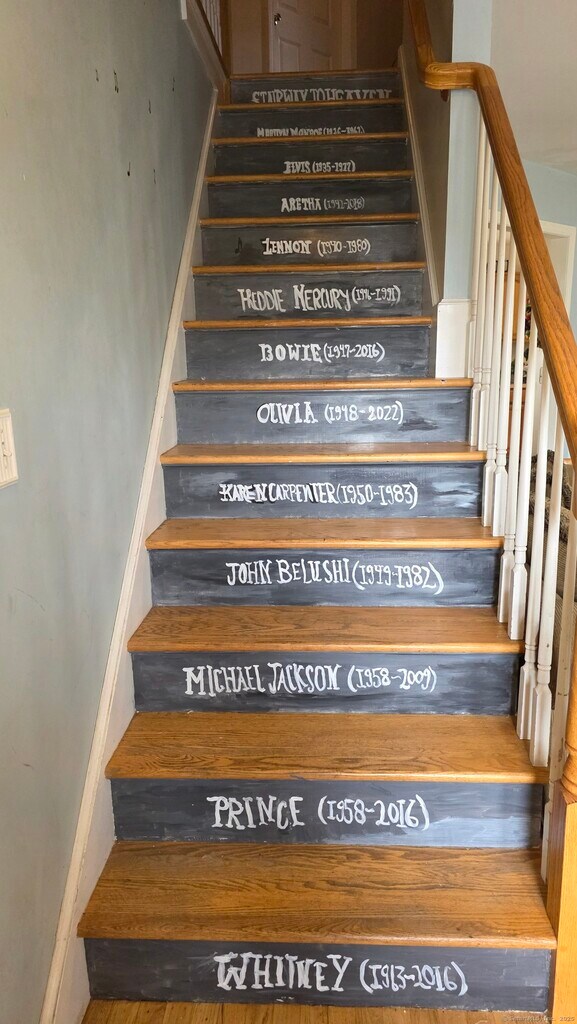 STAIRWAY TO HEAVEN
MARILYN MONROE (1926-1962)
ELVIS (1935-1977)
ARETHA (1942-2018)
LENNON (1940-1980)
FREDDIE MERCURY (1946-1991)
BOWIE (1947-2016)
OLIVIA (1948-2022)
KAREN CARPENTER (1950-1983)
JOHN BELUSHI (1949-1982)
MICHAEL JACKSON (1958-2009)
PRINCE (1958-2016)
WHITNEY (1963-2016)